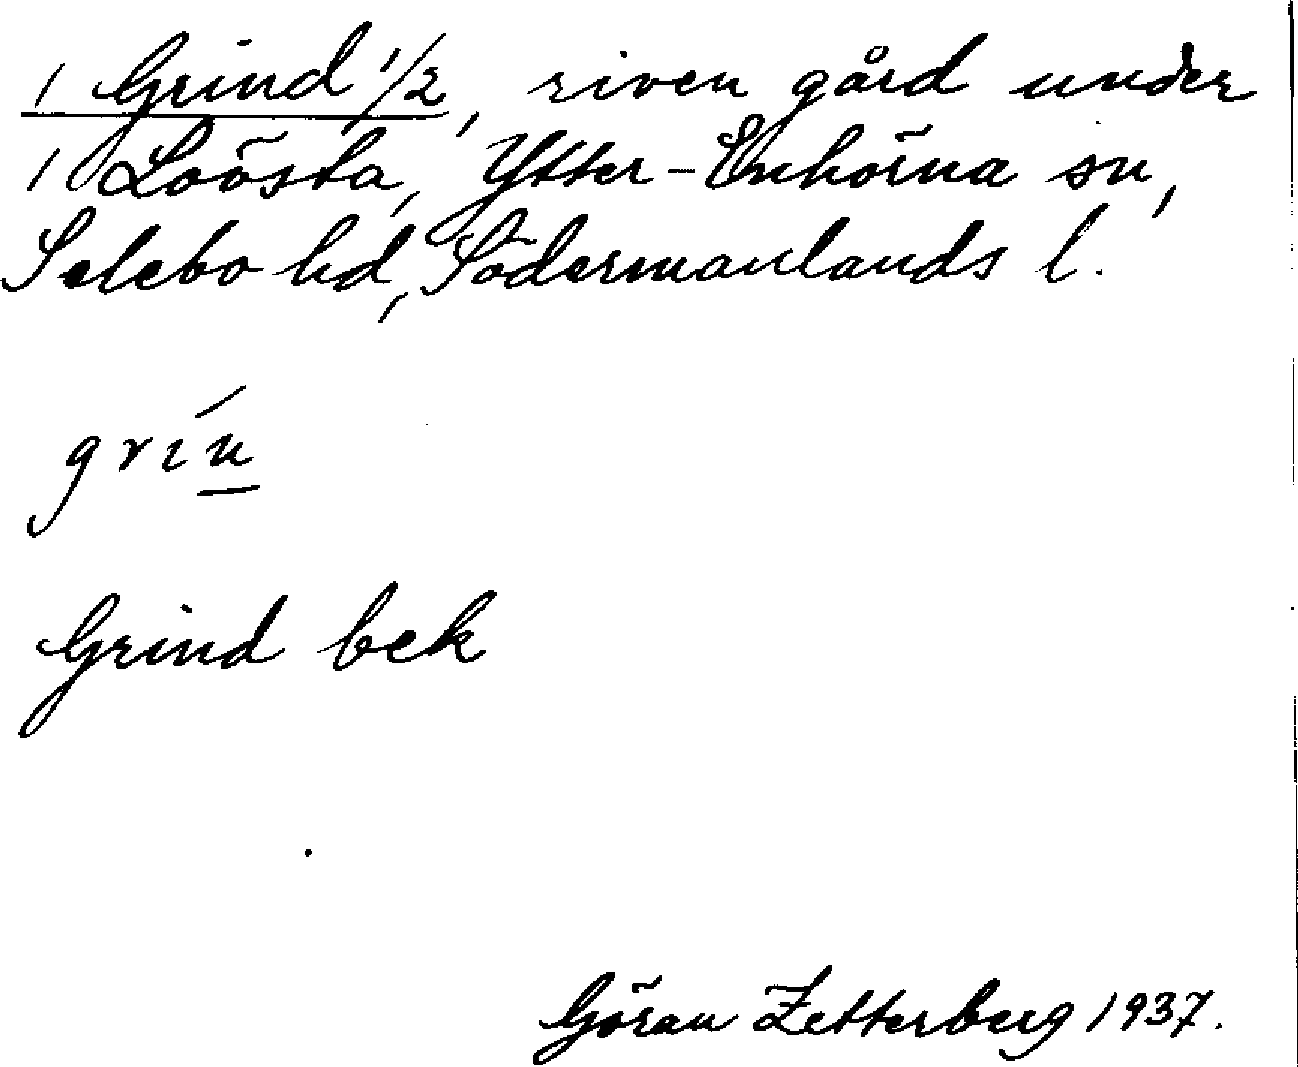 1 Grind 1/2, riven gård under
1 Loösta, Ytter-Enhörna sn,
Selebo hd, Södermanlands l.
grín
Grind bek
Göran Zetterberg 1937.